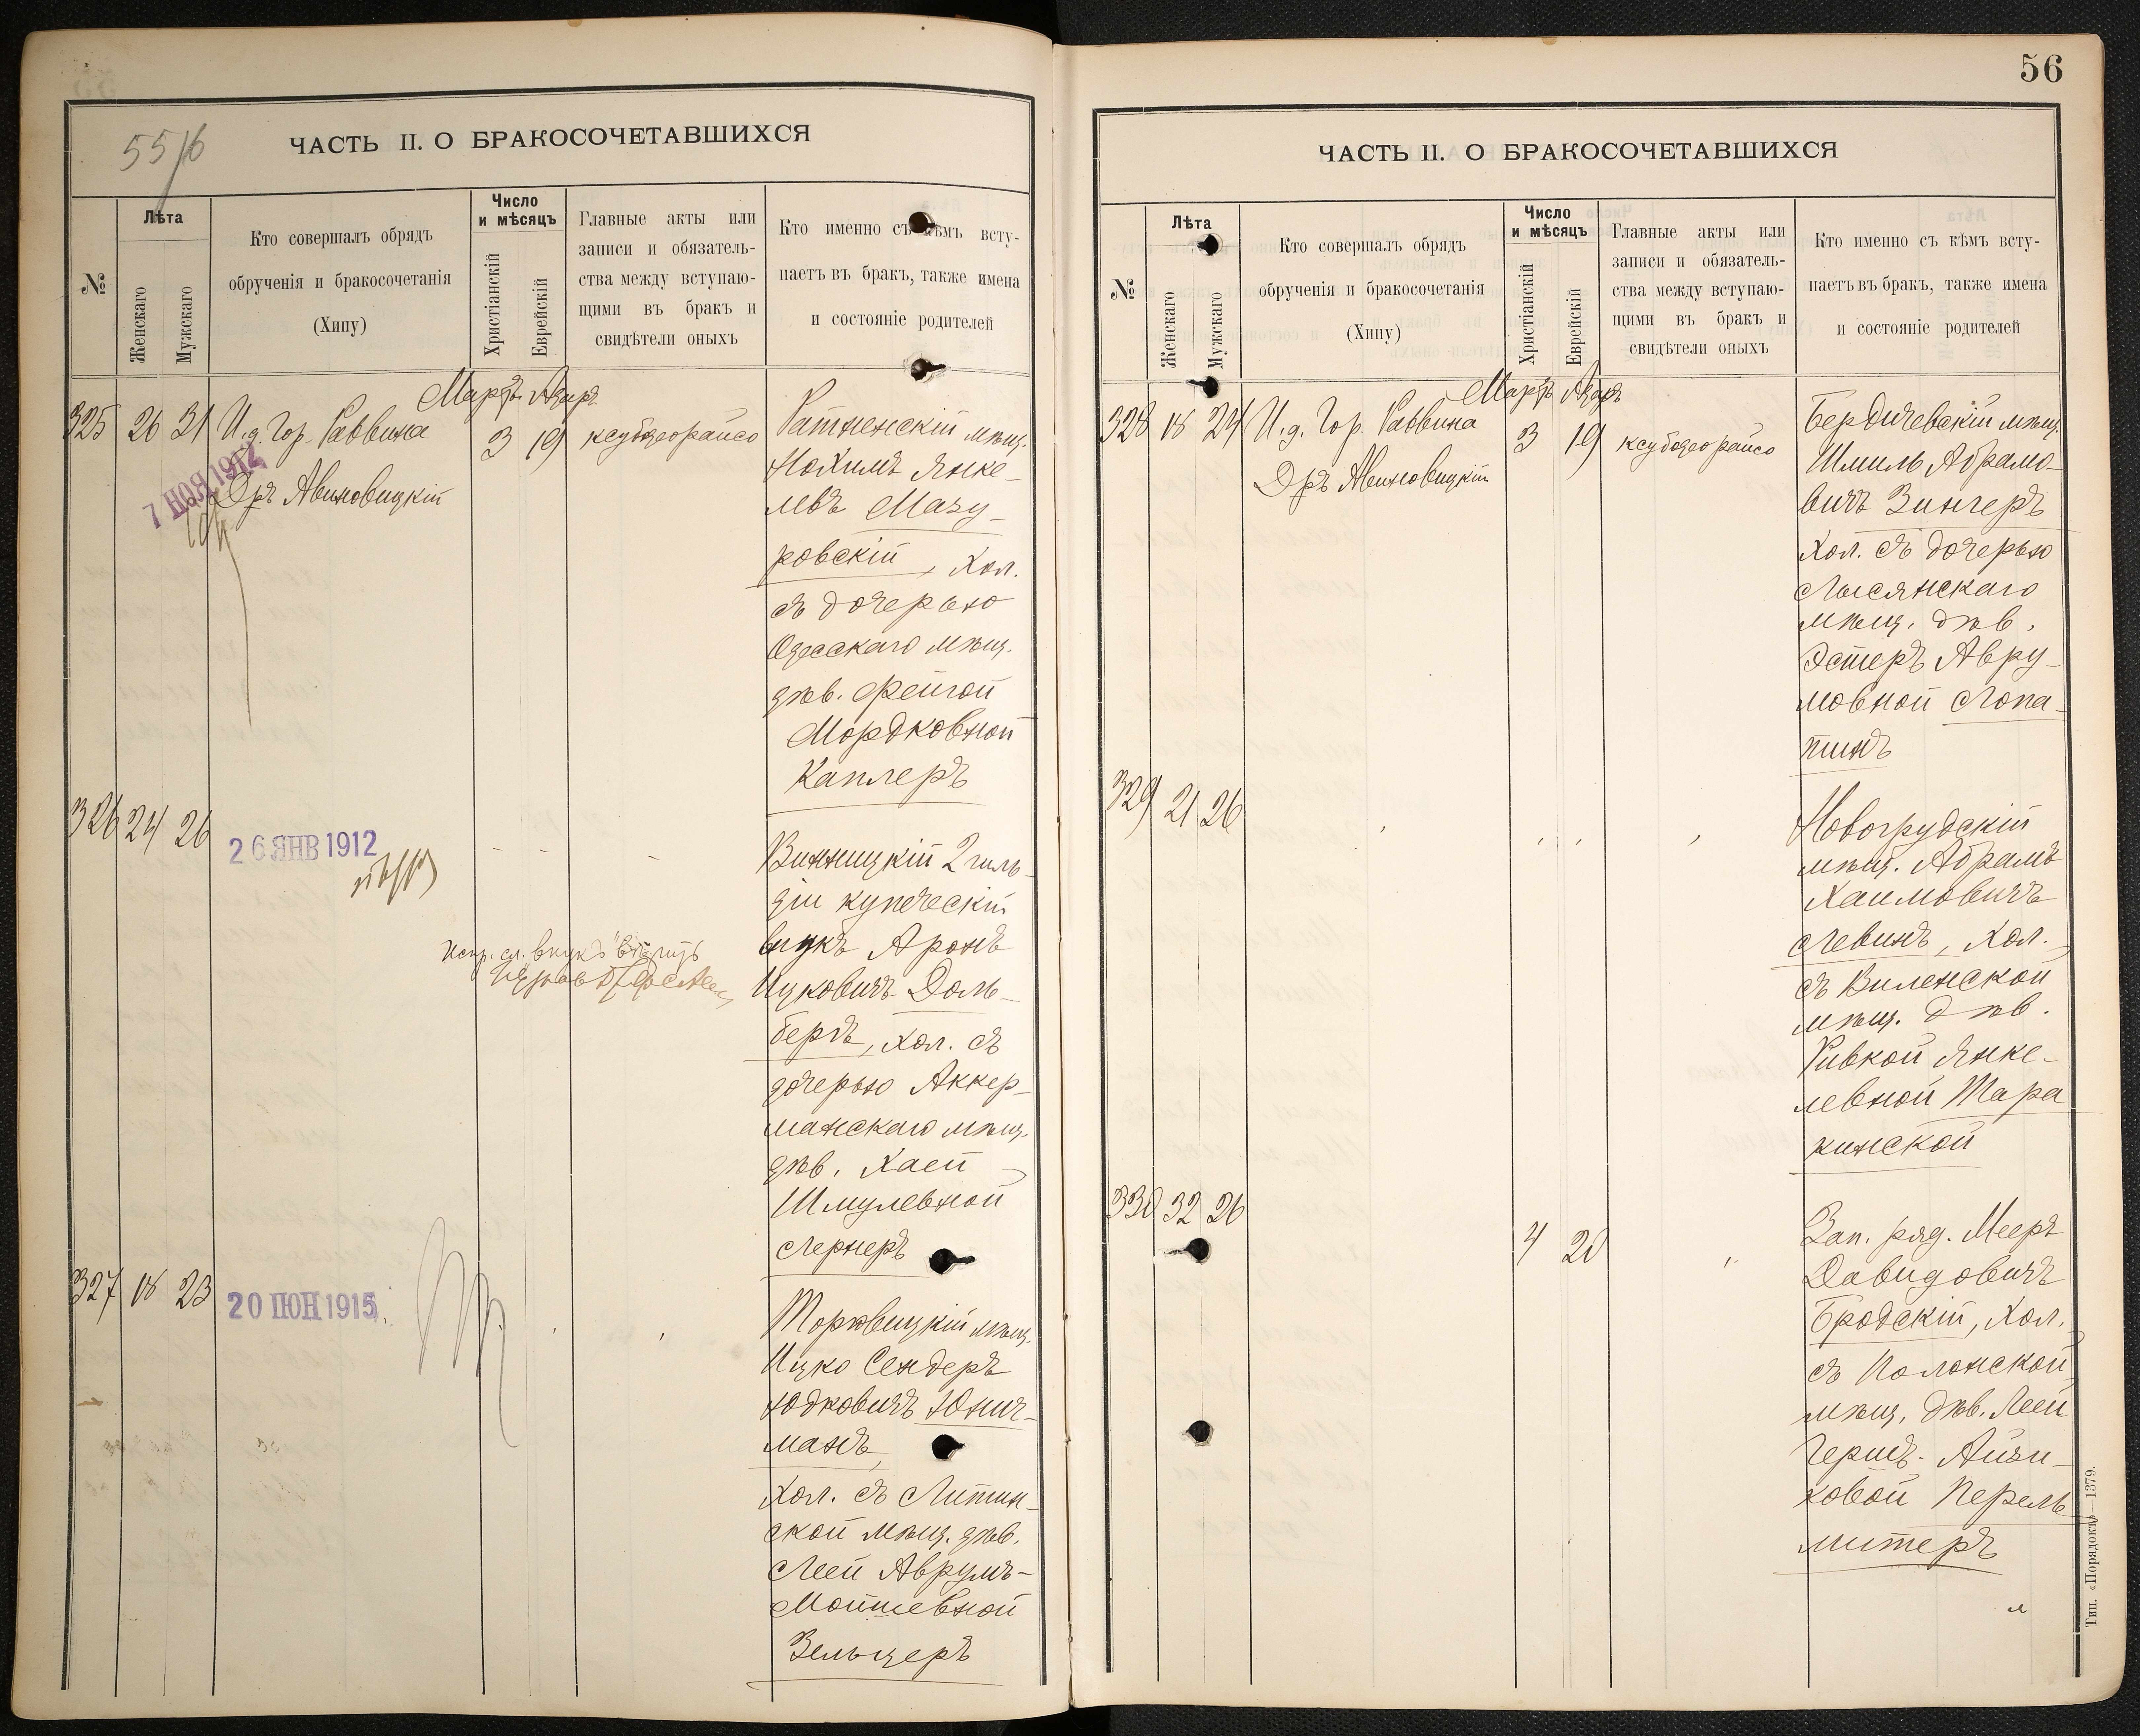 55/6
ЧАСТЬ II. О БРАКОСОЧЕТАВШИХСЯ
№
Лѣта
Женскаго
Мужскаго
Кто совершалъ обрядъ
обрученія и бракосочетанія
(Хипу)
Число
и мѣсяцъ
Христіанскій
Еврейскій
Главные акты или
записи и обязатель-
ства между вступаю-
щими въ бракъ и
свидѣтели оныхъ
Кто именно съ кѣмъ всту-
паетъ въ бракъ, также имена
и состояніе родителей
Мартъ Адаръ
325 26 31 И.д. Гор. Раввина 3 19
Дръ Авиновицкій
7 НОЯ 1912
Ратненскій мѣщ.
Нохимъ Янке-
левъ Мазу-
ровскій, хол.
съ дочерью
Одесскаго мѣщ.
дѣв. Фейгой
Мордковной
Каплеръ
326 24 26
26 ЯНВ 1912
Винницкій 2 гиль-
діи купеческій
внукъ Аронъ
Ицковичъ Доль-
бергъ, хол. съ
дочерью Аккер-
манскаго мѣщ.
дѣв. Хаей
Шмулевной
Лернеръ
327 18 23
20 ІЮН 1915
мѣщ.
Ицко Сендеръ
Юдковичъ Юнич-
манъ,
Хол. съ Литин-
ской мѣщ. дѣв.
Леей Аврумъ-
Мошевной
Зельцеръ
56
ЧАСТЬ II. О БРАКОСОЧЕТАВШИХСЯ
№
Лѣта
Женскаго
Мужскаго
Кто совершалъ обрядъ
обрученія и бракосочетанія
(Хипу)
Число
и мѣсяцъ
Христіанскій
Еврейскій
Главные акты или
записи и обязатель-
ства между вступаю-
щими въ бракъ и
свидѣтели оныхъ
Кто именно съ кѣмъ всту-
паетъ въ бракъ, также имена
и состояніе родителей
Мартъ Адаръ
328 18 24 И.д. Гор. Раввина 3 19
Дръ Авиновицкій
Бердичевскій мѣщ.
Шмиль Абрамо-
вичъ Зингеръ
Хол. съ дочерью
Лысянскаго
мѣщ. дѣв.
Эстеръ Авру-
мовной Лопа-
тинъ
329 21 26
Новогрудскій
мѣщ. Абрамъ
Хаимовичъ
Левинъ, Хол.
съ Виленской
мѣщ. дѣв.
Ривкой Янке-
левной Тара
кинской
330 32 26 4 20
Зап. ряд. Мееръ
Давидовичъ
Бродскій, Хол.
съ Полонской
мѣщ. дѣв. Леей
Гершъ-Айзи-
ковой Перель
митеръ
Тип. «Порядокъ»—1379.